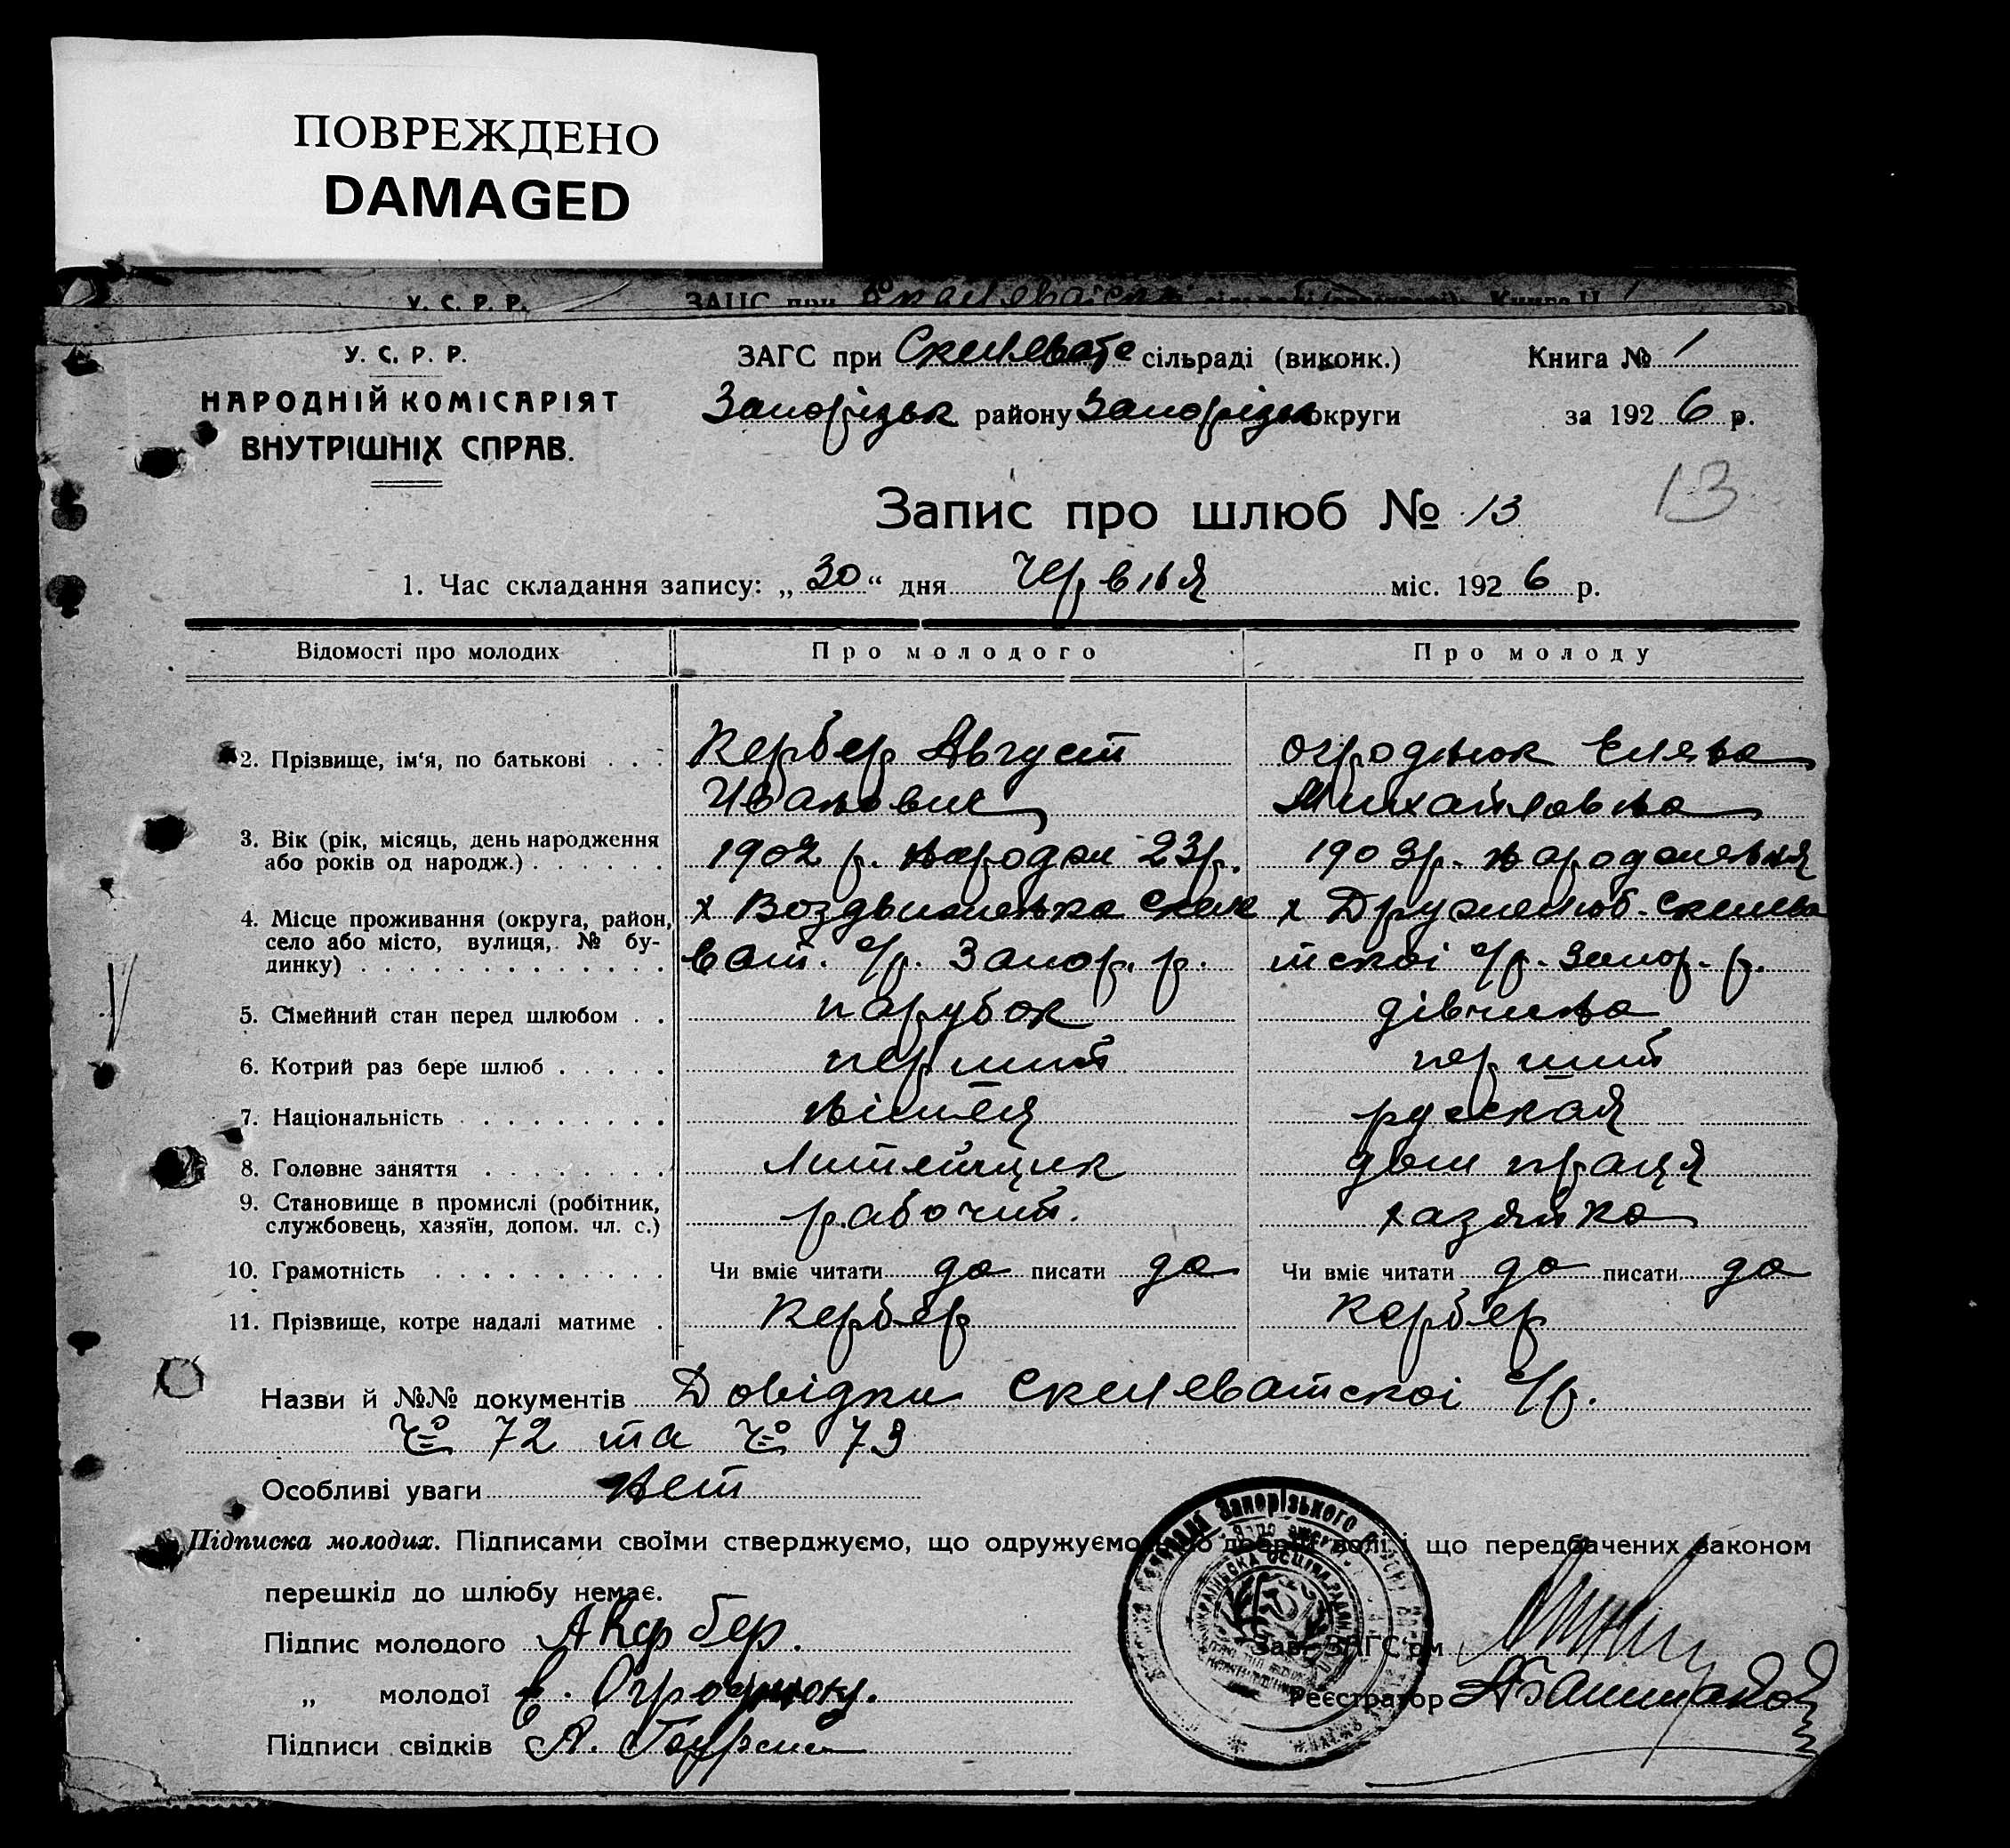 ПОВРЕЖДЕНО
DAMAGED
У. С. Р. Р. ЗАГС при
У. С. Р. Р.
НАРОДНІЙ КОМІСАРІЯТ
ВНУТРІШНІХ СПРАВ.
ЗАГС при Скелевате сільраді (виконк.) Книга № 1
Запорізьк району Запорізьк округи за 1926 р.
13
Запис про шлюб № 13
1. Час складання запису: „30“ дня червня міс. 1926 р.
Відомості про молодих Про молодого Про молоду
2. Прізвище, ім‘я, по батькові . . . Кербер Август Огроднюк Елена
Иванович Михайловна
3. Вік (рік, місяць, день народження
або років од народж.) . . . . . . 1902 р. народжи 23р. 1903р. народження
4. Місце проживання (округа, район,
село або місто, вулиця, № бу-
динку) . . . . . . . . . . . . .
х Воздвиженка Скеле х Дружелюб. Скелева
ват. с/р. Запор. р. тскоі с/р. Запор. р.
5. Сімейний стан перед шлюбом . . парубок дівчина
6. Котрий раз бере шлюб . . . . . перший перший
7. Національність . . . . . . . . . німец русская
8. Головне заняття . . . . . . . . Литейщик дом праця
9. Становище в промислі (робітник,
службовець, хазяїн, допом. чл. с.) рабочий. хазяйка
10. Грамотність . . . . . . . . . . Чи вміє читати да писати да Чи вміє читати да писати да
11. Прізвище, котре надалі матиме . Кербер Кербер
Назви й №№ документів Довідки Скелеватскоі с/р.
Ч° 72 та Ч° 73
Особливі уваги нет
Підписка молодих. Підписами своїми стверджуємо, що одружуємось по добрій волі і що передбачених законом
перешкід до шлюбу немає.
Підпис молодого АКербер.
„ молодої Е. Огроднюк.
Підписи свідків А.
Зав. ЗАГС‘ом
Реєстратор
Запорізького